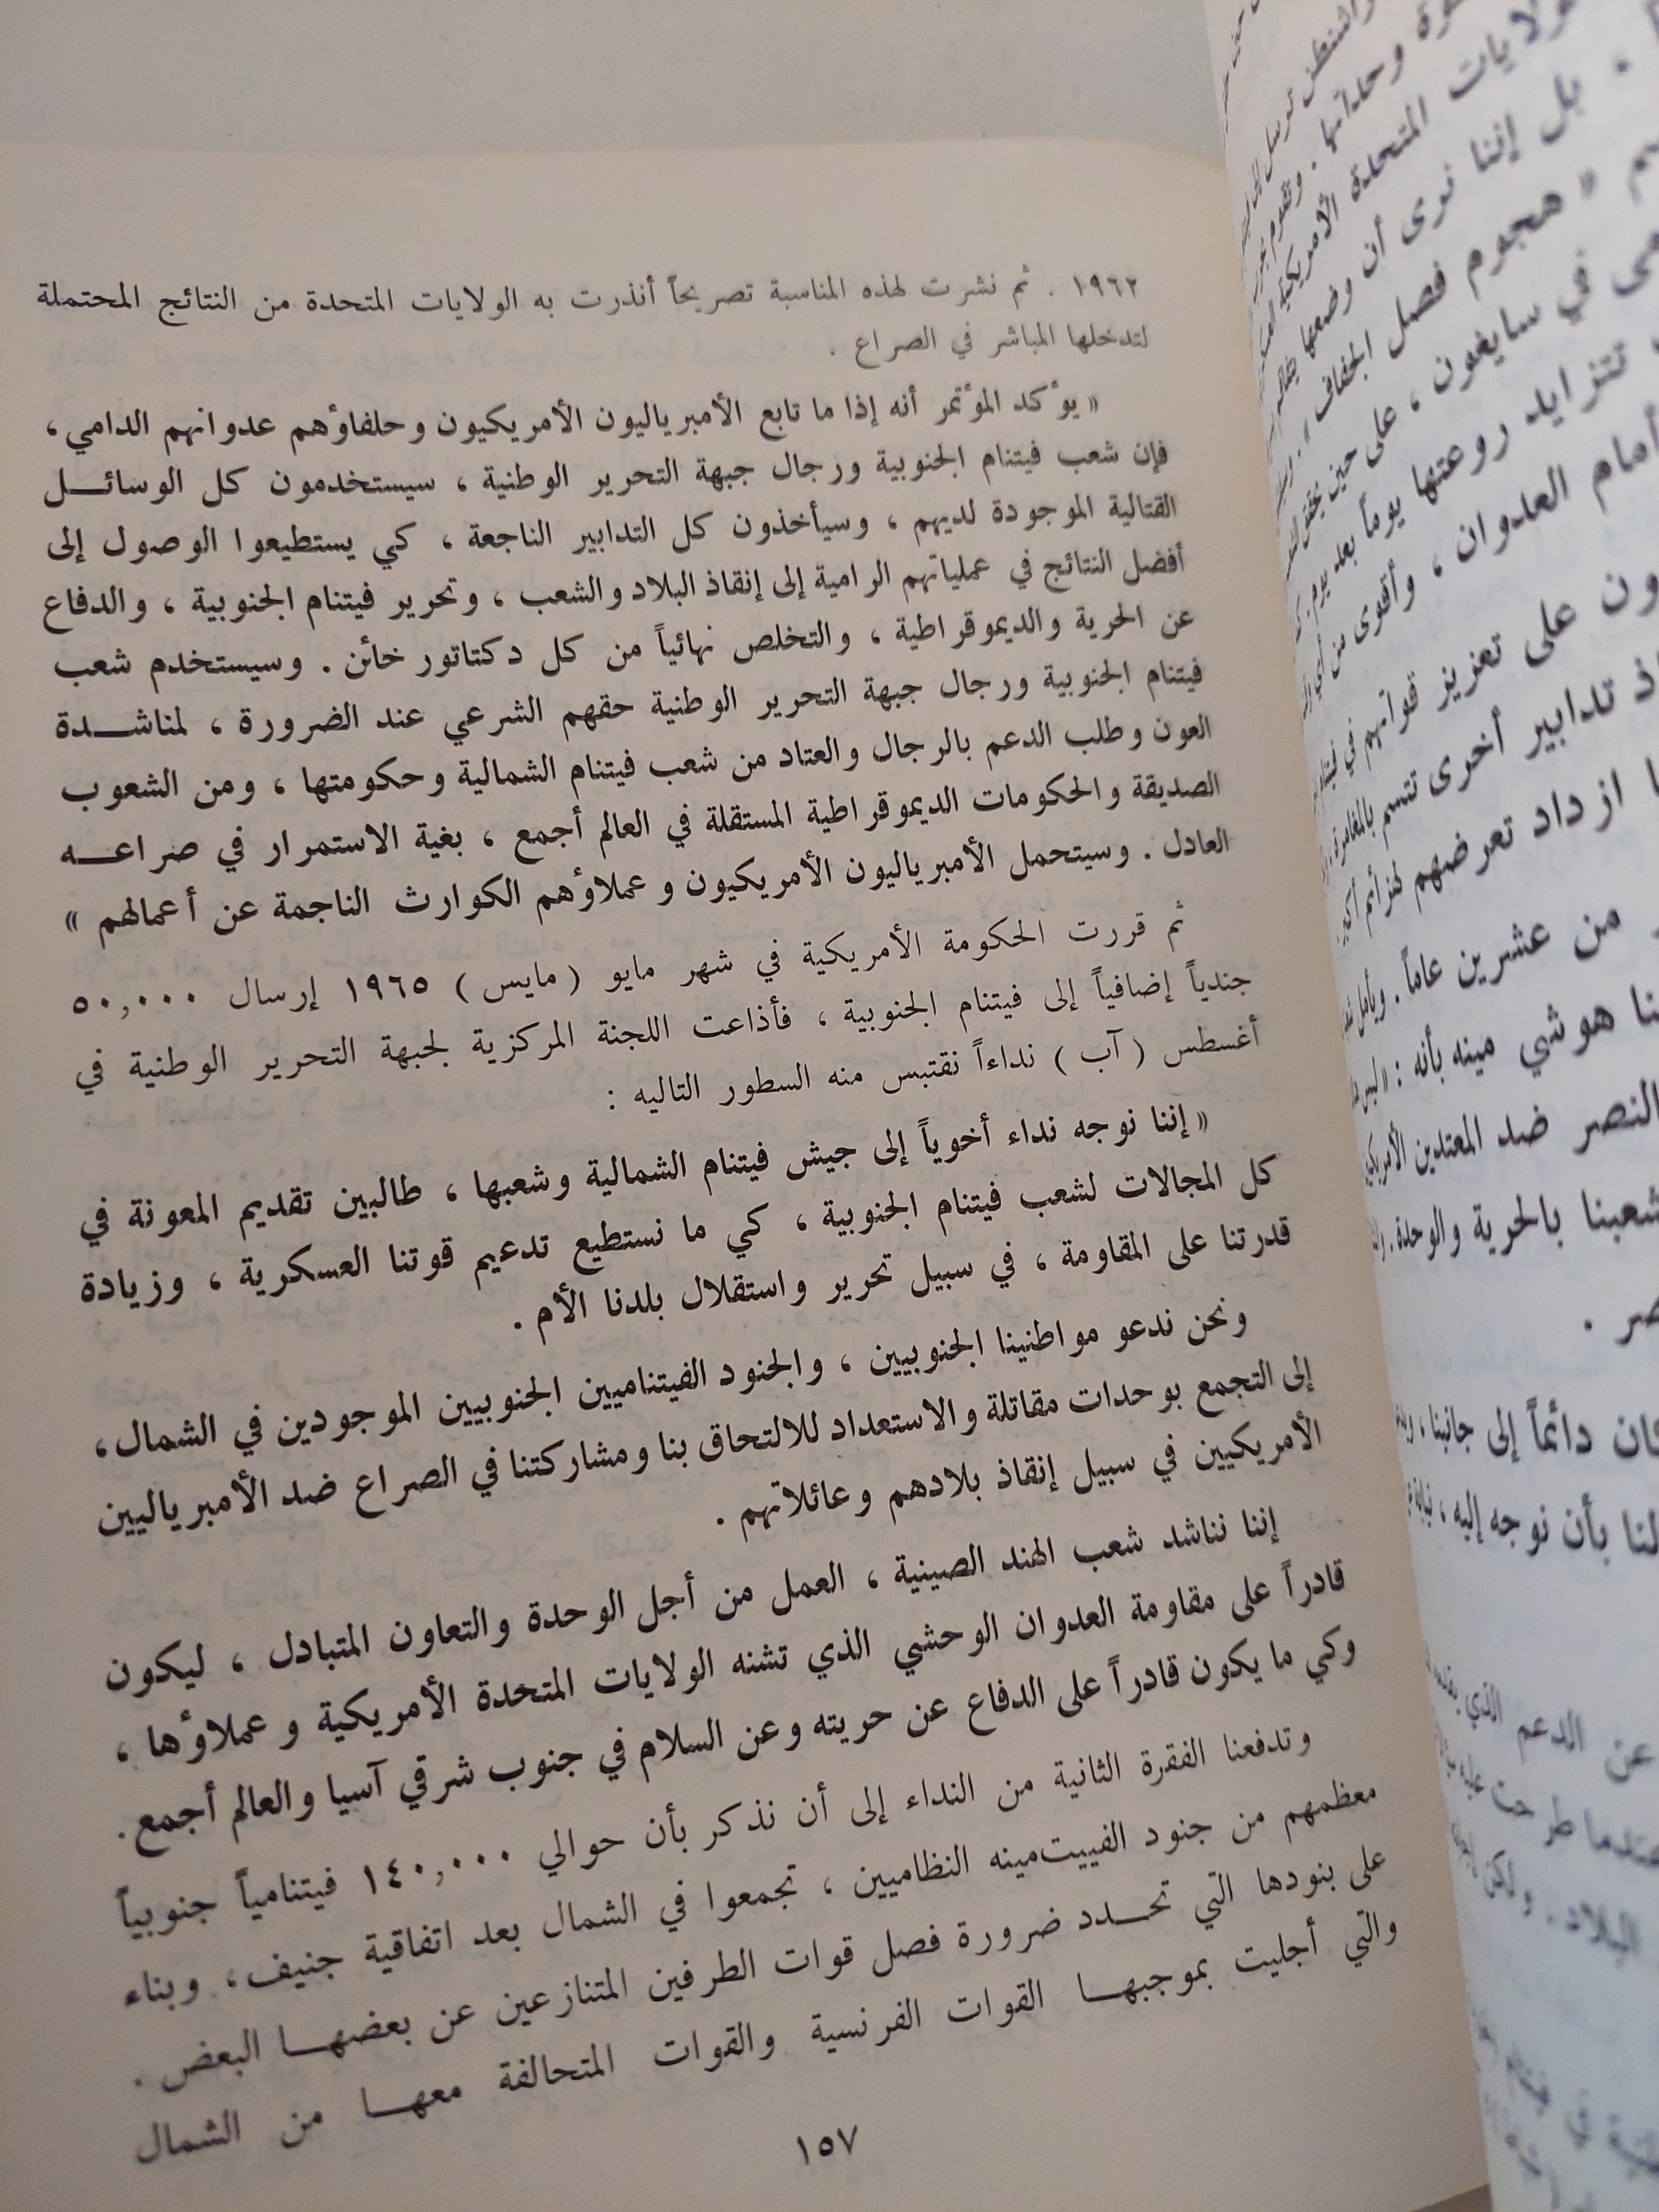 ١٩٦٢ . ثم نشرت لهذه المناسبة تصريحاً أنذرت به الولايات المتحدة من النتائج المحتملة
لتدخلها المباشر في الصراع .
« يؤكد المؤتمر أنه إذا ما تابع الأمبرياليون الأمريكيون وحلفاؤهم عدوانهم الدامي ،
فإن شعب فيتنام الجنوبية ورجال جبهة التحرير الوطنية ، سيستخدمون كل الوسائل
القتالية الموجودة لديهم ، وسيأخذون كل التدابير الناجعة ، كي يستطيعوا الوصول إلى
أفضل النتائج في عملياتهم الرامية إلى إنقاذ البلاد والشعب ، وتحرير فيتنام الجنوبية ، والدفاع
عن الحرية والديموقراطية ، والتخلص نهائياً من كل دكتاتور خائن . وسيستخدم شعب
فيتنام الجنوبية ورجال جبهة التحرير الوطنية حقهم الشرعي عند الضرورة ، لمناشدة
العون وطلب الدعم بالرجال والعتاد من شعب فيتنام الشمالية وحكومتها ، ومن الشعوب
الصديقة والحكومات الديموقراطية المستقلة في العالم أجمع ، بغية الاستمرار في صراعه
العادل . وسيتحمل الأمبرياليون الأمريكيون وعملاؤهم الكوارث الناجمة عن أعمالهم »
ثم قررت الحكومة الأمريكية في شهر مايو ( مايس ) ١٩٦٥ إرسال ٥٠,٠٠٠
جندياً إضافياً إلى فيتنام الجنوبية ، فأذاعت اللجنة المركزية لجبهة التحرير الوطنية في
أغسطس ( آب ) نداءاً نقتبس منه السطور التاليه :
« إننا نوجه نداء أخوياً إلى جيش فيتنام الشمالية وشعبها ، طالبين تقديم المعونة في
كل المجالات لشعب فيتنام الجنوبية ، كي ما نستطيع تدعيم قوتنا العسكرية ، وزيادة
قدرتنا على المقاومة ، في سبيل تحرير واستقلال بلدنا الأم .
ونحن ندعو مواطنينا الجنوبيين ، والجنود الفيتناميين الجنوبيين الموجودين في الشمال ،
إلى التجمع بوحدات مقاتلة والاستعداد للالتحاق بنا ومشاركتنا في الصراع ضد الأمبرياليين
الأمريكيين في سبيل إنقاذ بلادهم وعائلاتهم .
إننا نناشد شعب الهند الصينية ، العمل من أجل الوحدة والتعاون المتبادل ، ليكون
قادراً على مقاومة العدوان الوحشي الذي تشنه الولايات المتحدة الأمريكية وعملاؤها ،
وكي ما يكون قادراً على الدفاع عن حريته وعن السلام في جنوب شرقي آسيا والعالم أجمع .
وتدفعنا الفقرة الثانية من النداء إلى أن نذكر بأن حوالي ١٤٠,٠٠٠ فيتنامياً جنوبياً
معظمهم من جنود الفييت‌مينه النظاميين ، تجمعوا في الشمال بعد اتفاقية جنيف ، وبناء
على بنودها التي تحدد ضرورة فصل قوات الطرفين المتنازعين عن بعضها البعض .
والتي أجليت بموجبها القوات الفرنسية والقوات المتحالفة معها من الشمال
١٥٧
وحداتها . وتقوم
الولايات المتحدة الأمريكية
. بل إننا نرى أن وضعها
« هجوم فصل الجفاف » .
في سايغون ، على حين
تتزايد روعتها يوماً بعد يوم .
أمام العدوان ، وأقوى من
على تعزيز قواتهم في
تدابير أخرى تتسم بالمغامرة
ازداد تعرضهم لهزائم أكبر
من عشرين عاماً .
هوشي مينه بأنه :
النصر ضد المعتدين
شعبنا بالحرية والوحدة .
كان دائماً إلى جانبنا ،
لنا بأن نوجه إليه ،
عن الدعم الذي
عندما طرحت عليه
البلاد . ولكن